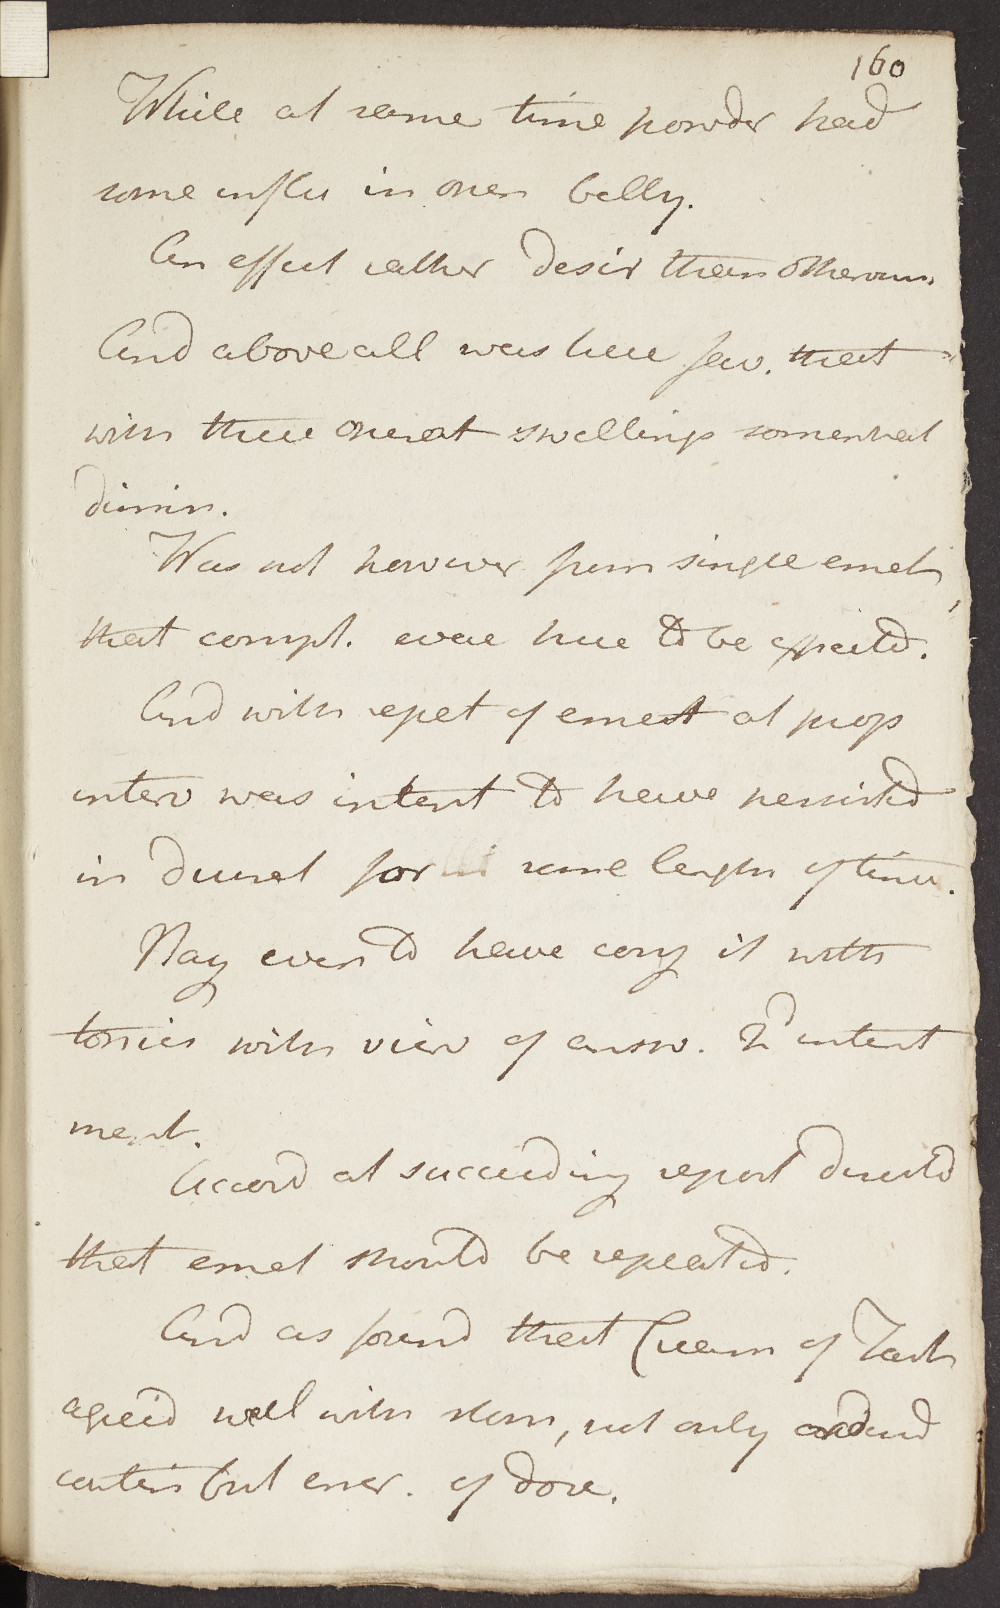 160
While at same time powder had
some influ in open belly.
An effect rather desir than otherwise.
And above all was here fav. that
with these operat swellings somewhat
dimin.
Was not however from single emet,
that compl. cure here to be expected.
And with repet of emet at prop
interv was intent to have persisted
in diuret for some length of time.
Nay even to have conj it with
tonics with view of answ. 2d intent
ment.
Accord at succeeding report directed
that emet should be repeated.
And as found that Cream of Tart
agreed well with stom, not only ordered
contin but encr. of dose.